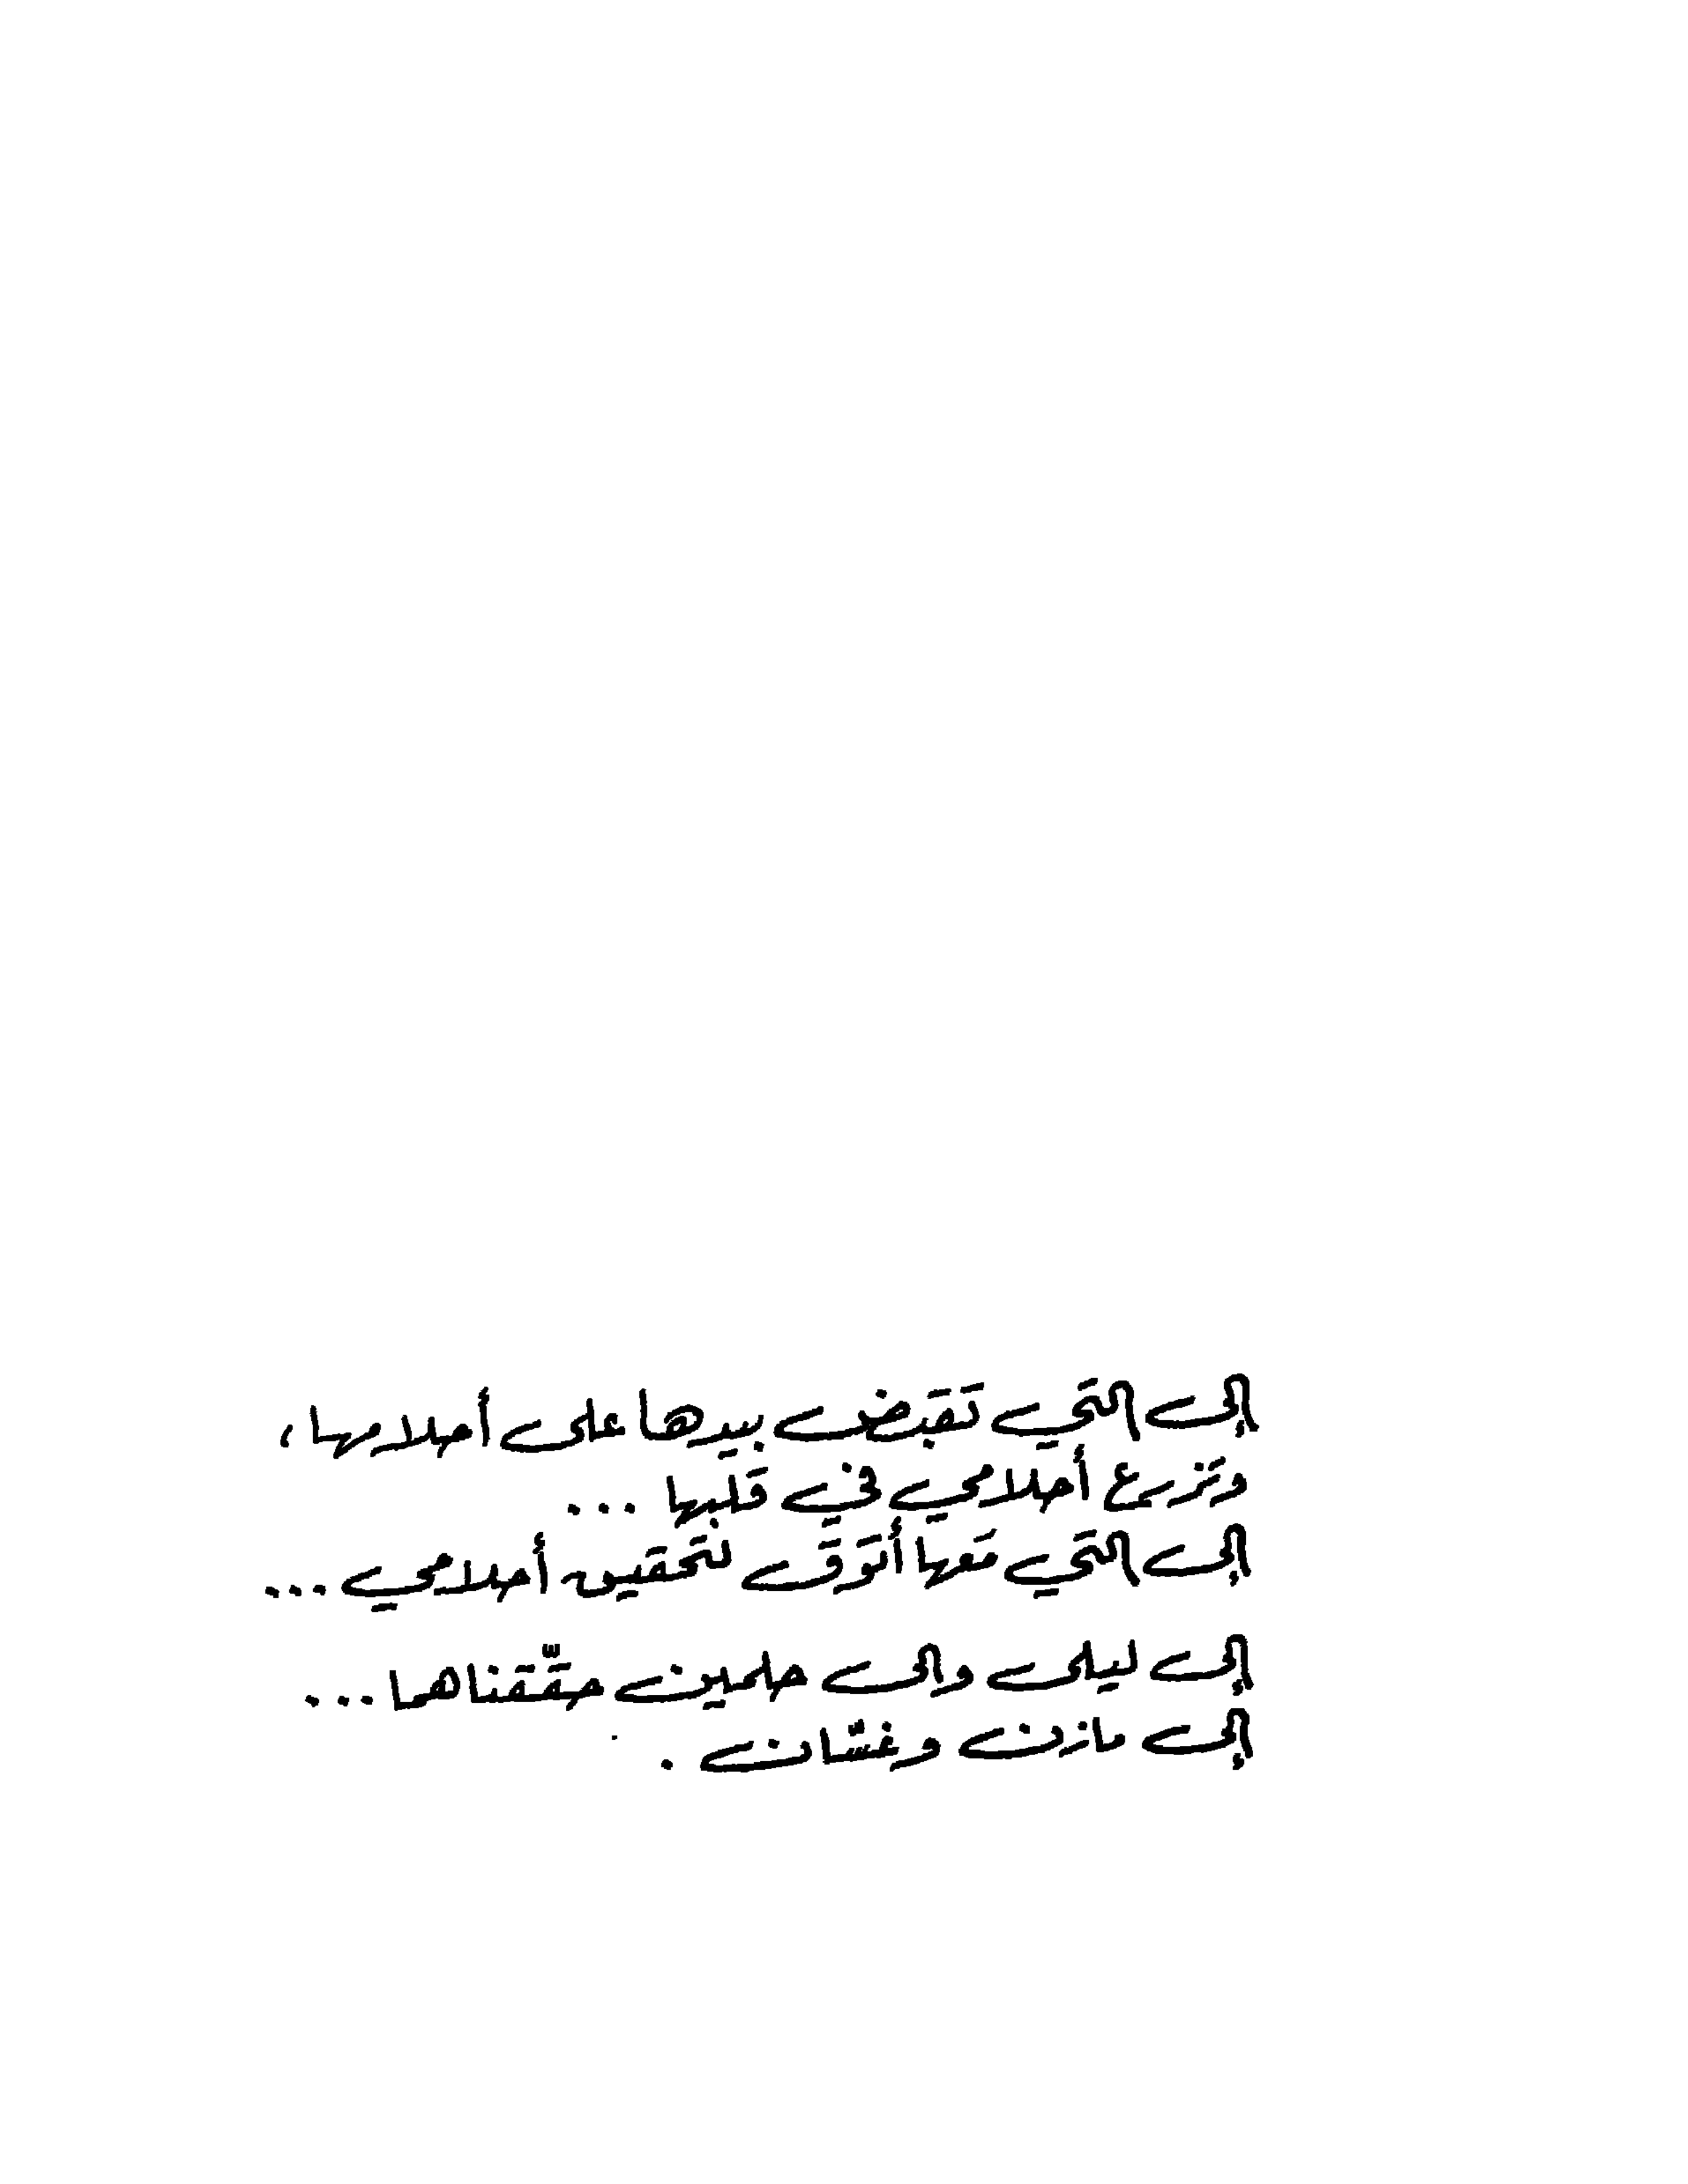 إلى التي تقبض بيدها على أحلامها،
وتزرع أحلامي في قلبها ...
إلى التي معها أتوق لتحقيق أحلامي ...
إلى ليلى وإلى حلمين حقّقناهما ...
إلى مازن وغسّان .